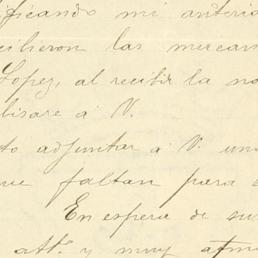 ificando mi anterio
cibieron las mercan
Lopez, al recibir la no
lisare á V.
to adjuntar á V. un
ue faltan para
En espera de su
att.º y muy afmo